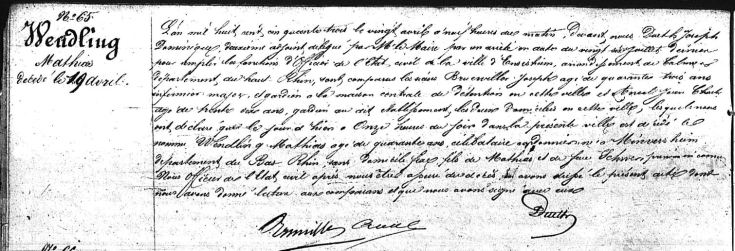 No. 65
Wendling
Mathias
décédé le 19 avril
L'an mil huit cent cinquante trois le vingt avril à neuf heures du matin, Devant nous Dueth Joseph
Dominique deuxième adjoint délégué par Mr. le Maire par un arrêté en date du vingt six juillet dernier
pour remplir les fonctions d'Officier de l'Etat civil de la ville d'Ensisheim, arrondissement de Colmar
département du haut Rhin, sont comparus les sieurs Joseph agé de quarante trois ans
infirmier major, et gardien à la maison centrale de détention en cette ville et Jean
agé de trente six ans, gardien au dit établissement, les deux domiciliés en cette ville, lesquels nous
ont déclaré que le jour d'hier à Onze heures du soir dans la présente ville est décédé le
nommé Wendling Mathias agé de quarante ans, célibataire cordonnier né à Minversheim
département du Bas Rhin, sans domicile fixe fils de Mathias et de feue
Nous Officier de l'Etat civil après nous être assuré du décès, en avons dressé le présent acte dont
nous avons donné lecture aux comparants et que nous avons signé avec eux
Dueth